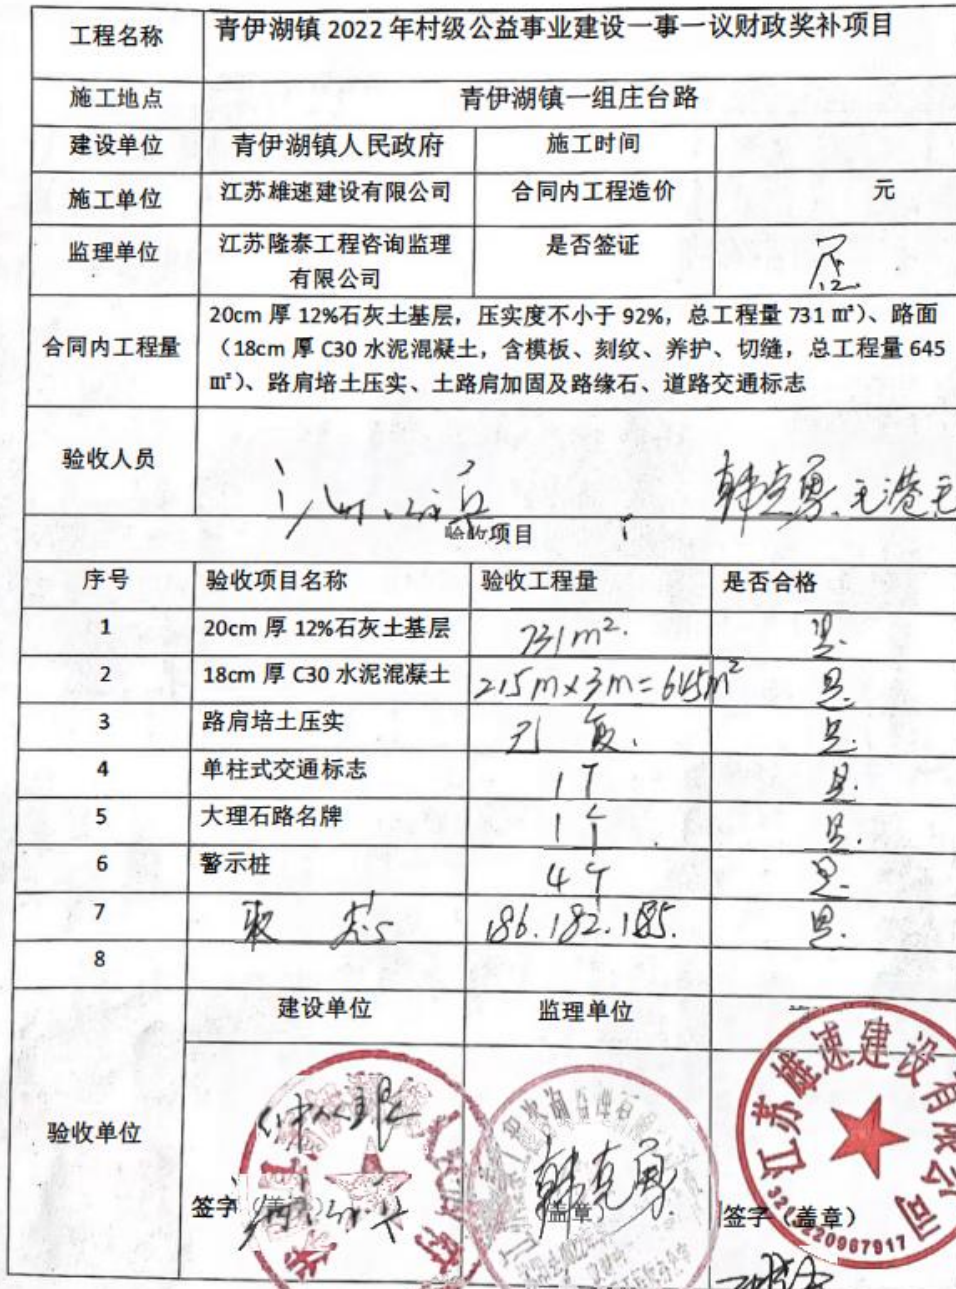 工程名称 青伊湖镇 2022 年村级公益事业建设一事一议财政奖补项目
施工地点 青伊湖镇一组庄台路
建设单位 青伊湖镇人民政府 施工时间
施工单位 江苏雄速建设有限公司 合同内工程造价 元
监理单位 江苏隆泰工程咨询监理 是否签证 否
有限公司
合同内工程量 20cm 厚 12%石灰土基层，压实度不小于 92%，总工程量 731 ㎡）、路面
（18cm 厚 C30 水泥混凝土，含模板、刻纹、养护、切缝，总工程量 645
㎡）、路肩培土压实、土路肩加固及路缘石、道路交通标志
验收人员 韩克勇
验收项目
序号 验收项目名称 验收工程量 是否合格
1 20cm 厚 12%石灰土基层 731m². 是.
2 18cm 厚 C30 水泥混凝土 215m×3m=645m² 是.
3 路肩培土压实 是.
4 单柱式交通标志 1个 是.
5 大理石路名牌 1个 是.
6 警示桩 4个 是.
7 186.182.185. 是.
8
建设单位 监理单位
验收单位
签字 韩克勇 （盖章） 签字（盖章）
江苏雄速建设有限公司